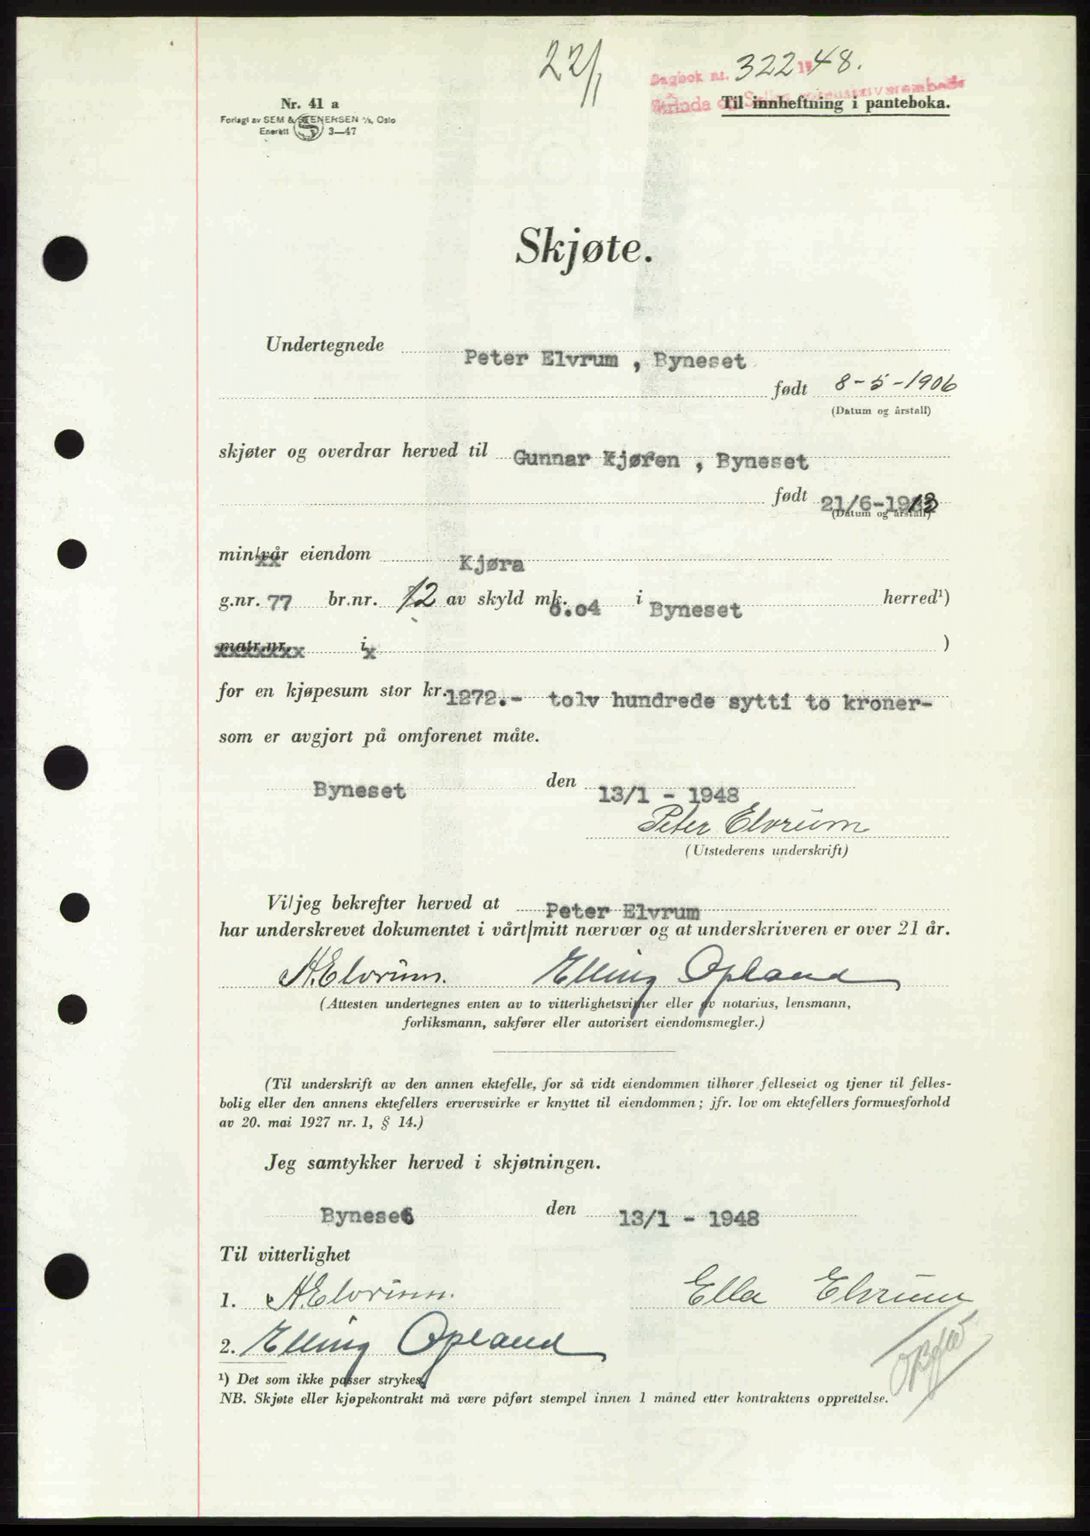 22/1
Dagbok nr. 322 1948.
Strinda og Selbu sorenskriverembede
Nr. 41 a
Til innheftning i panteboka.
Forlagt av SEM & STENERSEN A/S, Oslo
Enerett 3—47
Skjøte.
Undertegnede Peter Elvrum , Byneset
født 8-5-1906
(Datum og årstall)
skjøter og overdrar herved til Gunnar Kjøren , Byneset
født 21/6-1913
(Datum og årstall)
min/vår eiendom Kjøra
g.nr. 77 br.nr. 12 av skyld mk. 0.04 i Byneset herred¹)
matr.nr. i )
for en kjøpesum stor kr. 1272.- tolv hundrede sytti to kroner-
som er avgjort på omforenet måte.
Byneset den 13/1 - 1948
Peter Elvrum
(Utstederens underskrift)
Vi/jeg bekrefter herved at Peter Elvrum
har underskrevet dokumentet i vårt/mitt nærvær og at underskriveren er over 21 år.
A.Elvrum. Elling Opland
(Attesten undertegnes enten av to vitterlighetsvitner eller av notarius, lensmann,
forliksmann, sakfører eller autorisert eiendomsmegler.)
(Til underskrift av den annen ektefelle, for så vidt eiendommen tilhører felleseiet og tjener til felles-
bolig eller den annens ektefellers ervervsvirke er knyttet til eiendommen; jfr. lov om ektefellers formuesforhold
av 20. mai 1927 nr. 1, § 14.)
Jeg samtykker herved i skjøtningen.
Byneset den 13/1 - 1948
Til vitterlighet
1. A.Elvrum. Ella Elvrum
2. Elling Opland
¹) Det som ikke passer strykes.
NB. Skjøte eller kjøpekontrakt må være påført stempel innen 1 måned etter kontraktens opprettelse.